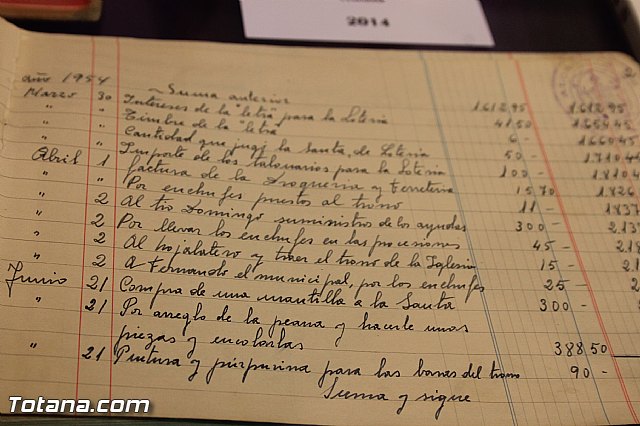 2014
año 1954
Suma anterior 1.612,95 1.612,95
Marzo 30 Intereses de la "letra" para la Loteria 41,50 1.654,45
" " Timbre de la "letra" 6 - 1.660,45
" " Cantidad que jugó la Santa, de Loteria 50 - 1.710,4
" " Importe de los talonarios para la Loteria 100 - 1.810,4
Abril 1 factura de la Drogueria y Ferreteria 15,70 1.826
" " Por enchufes puestos al trono 11 - 1.837
" 2 Al tio Domingo suministros de los ayudas 300 - 2.137
" 2 Por llevar los enchufes en las procesiones 45 - 2.18
" 2 Al hojalatero y traer el trono de la Iglesia 15 - 2.1
" 2 A Fernando el municipal, por los enchufes 25 - 2
Junio 21 Compra de una mantilla a la Santa 300 -
" 21 Por arreglo de la peana y hacerle unas
piezas y encolarlas 388 50
" 21 Pintura y purpurina para las baras del trono 90 -
Suma y sigue
Totana.com